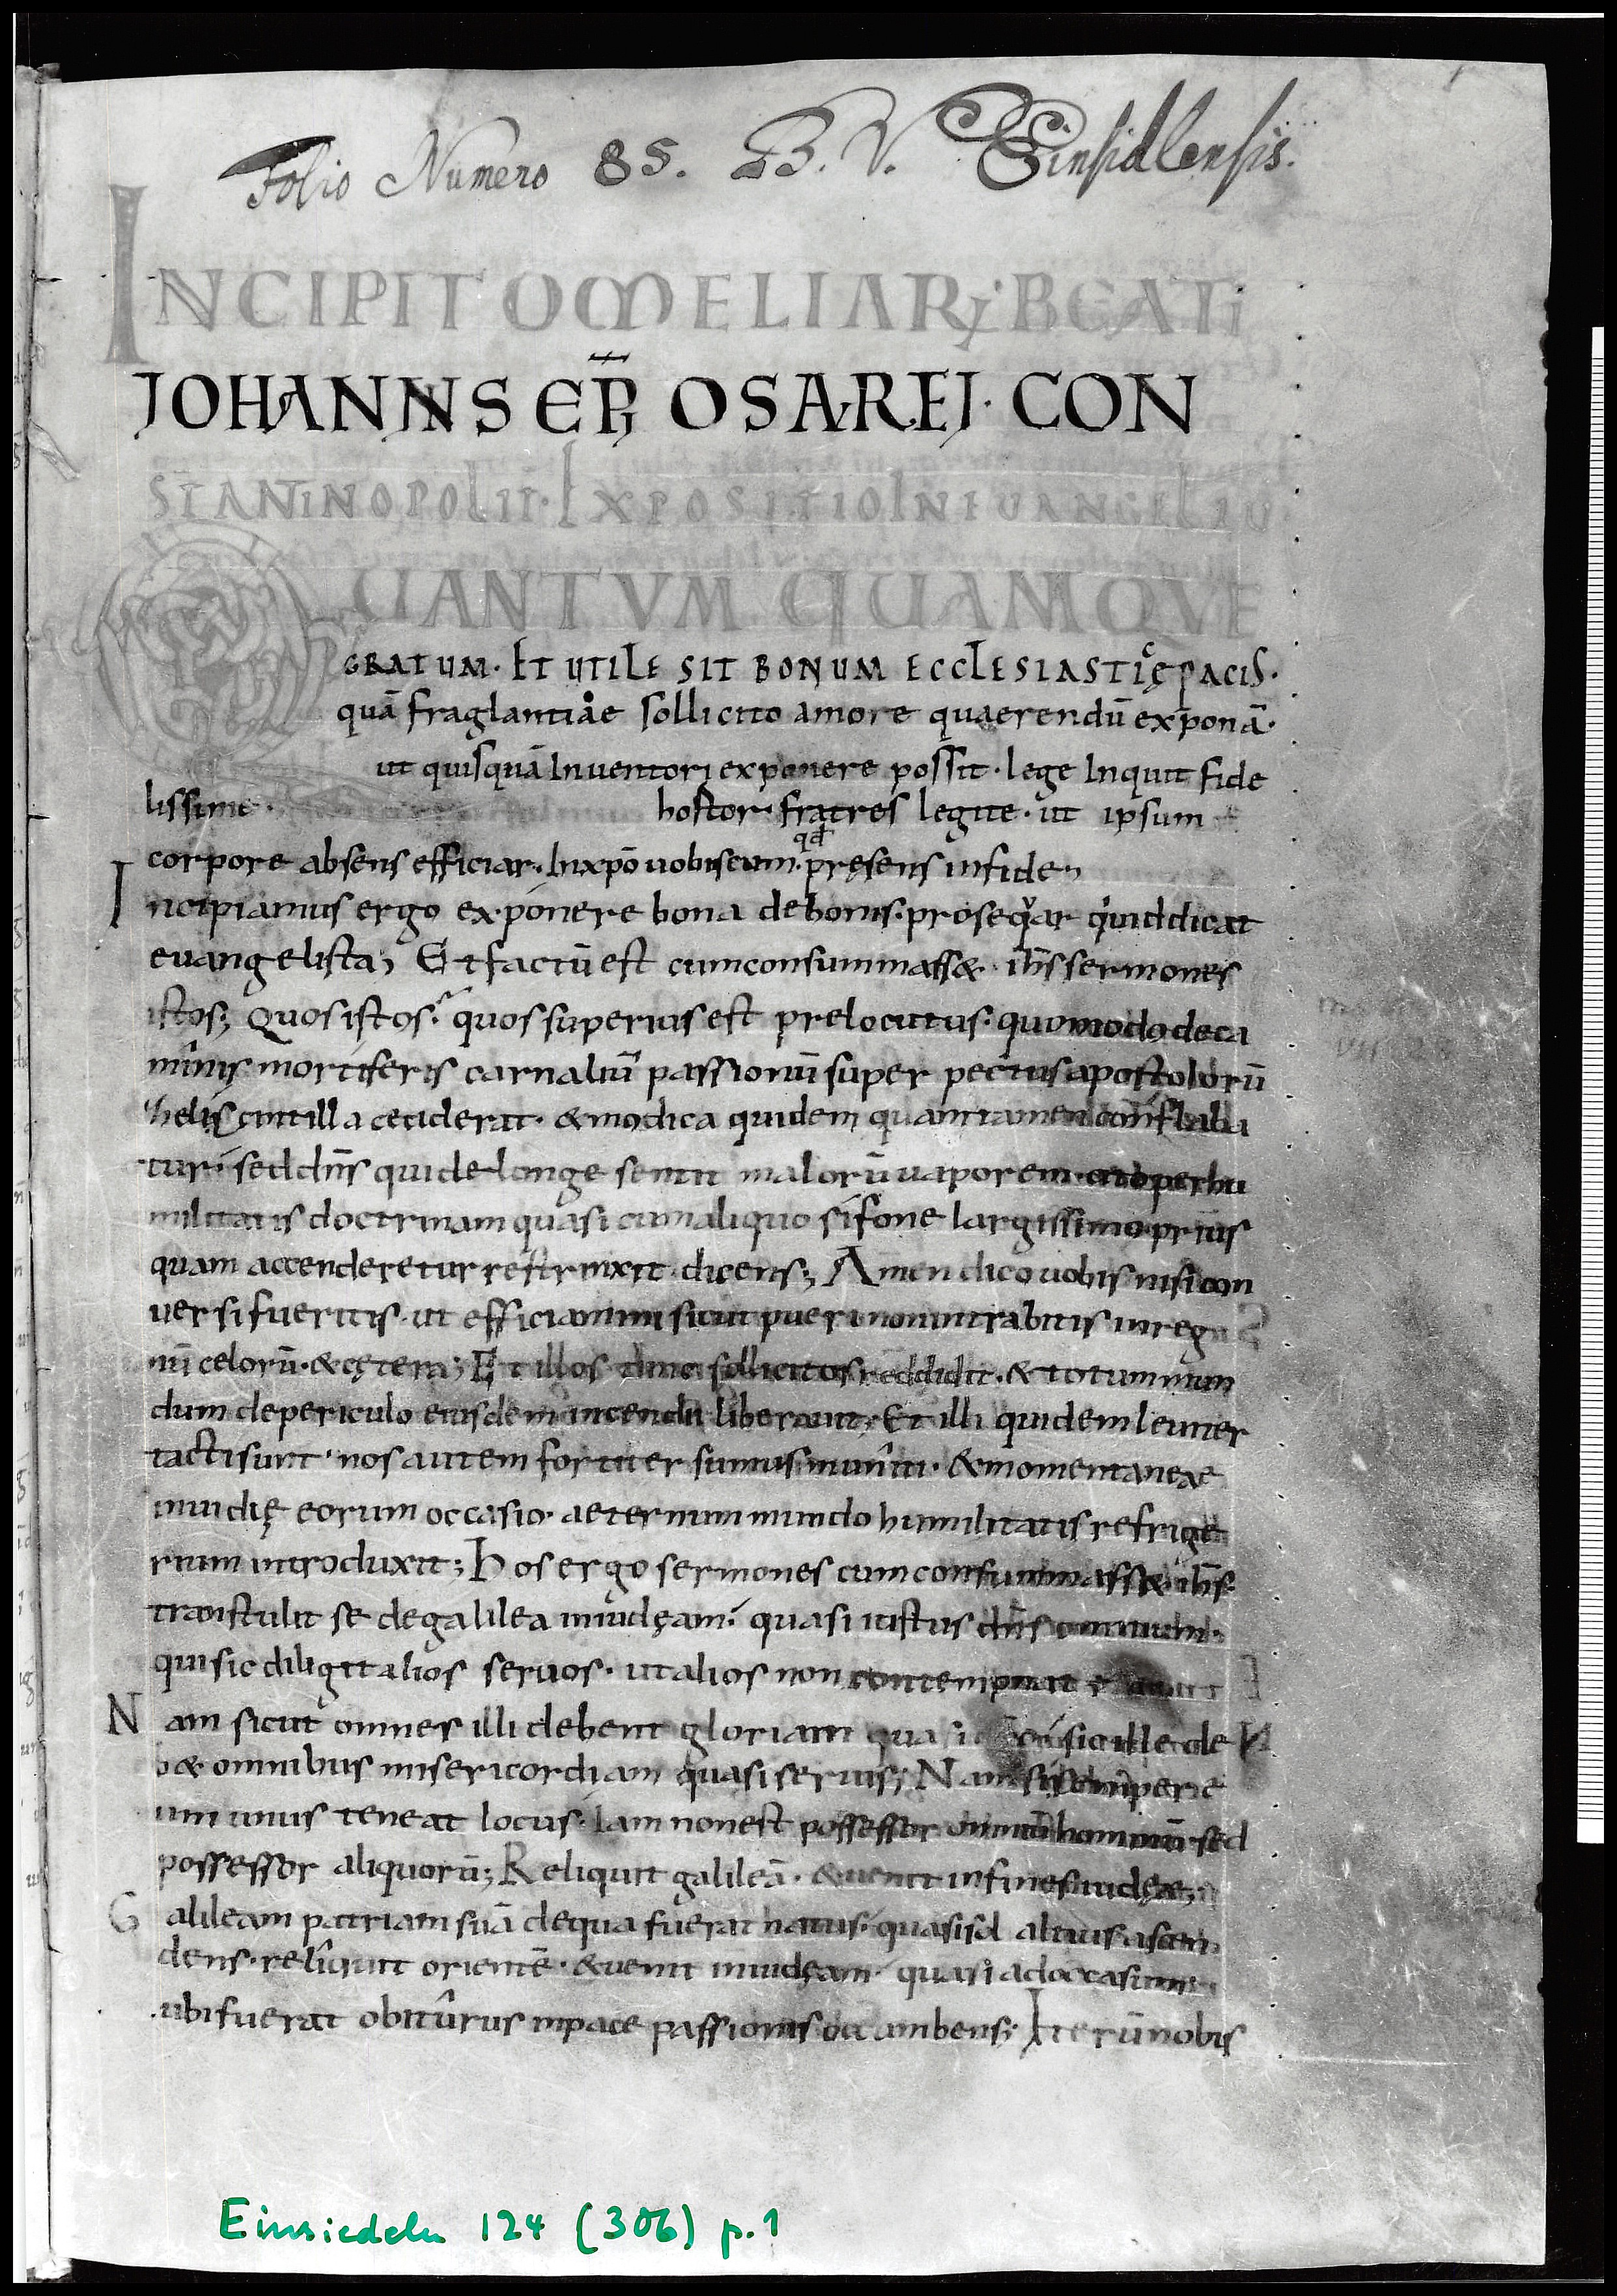 Folio Numero 85. B. V. Einsidlensis.
INCIPIT OMELIARꝝ BEATI
JOHANNIS EP̄I OSAREI· CON
STANTINOPOLIT· EXPOSITIO IN EUANGELIU
QUANTVM QUAMQVE
GRATUM· ET UTILE SIT BONUM ECCLESIASTICĘ PACIS·
quā fraglantiae sollicito amore quaerendū exponā·
ut quisquā Inuentori exponere possit· lege Inquit fide
lissime· hostor· fratres legite· ut ipsum
qđ
corpore absens efficiar· In xp̄o uobiscum· pręsens in fide;
Incipiamus ergo exponere bona de bonis· prosequar quid dicat
euangelista; Et factū est cum consummass& ih̄s sermones
istos; Quos istos? quos superius est prelocutus· quomodo de ca
minis mortiferis carnaliū passionū super pectus apostolorū
scintilla ceciderat· & modica quidem quam tamen conflaba
tur· sed dn̄s qui de longe sentit malorū uaporem· per hu
militatis doctrinam quasi cum aliquo sifone largissimo· prius
quam accenderetur restrinxit dicens; Amen dico uobis nisi con
uersi fueritis· ut efficiamini sicut pueri non intrabitis in reg
nū celorū· & cętera; Et illos sollicitos reddidit· & totum mun
dum de periculo eiusdem incendii liberauit; Et illi quidem leuiter
tacti sunt· nos autem fortiter sumus muniti· & momentaneae
inuidię eorum occasio· aeternum mundo humilitatis refrige
rium introduxit; Hos ergo sermones cum consummass& ih̄s·
transtulit se de galilea in iudęam· quasi iustus dn̄s omnium·
qui sic diligit alios seruos· ut alios non contempnat
Nam sicut omnes illi debent gloriam quasi sic ille de
b& omnibus misericordiam quasi seruis; Nam si
um unus teneat locus· iam non est possessor omniū hominū· sed
possessor aliquorū; Reliquit galileā· & uenit in fines iudęae;
Galileam patriam suā de qua fuerat natus· quasi sol altius ascen
dens· reliquit orientē· & uenit in iudęam· quasi ad occasum·
ubi fuerat obitûrus in pace passionis occumbens; Iterū nobis
Einsiedeln 124 (306) p. 1